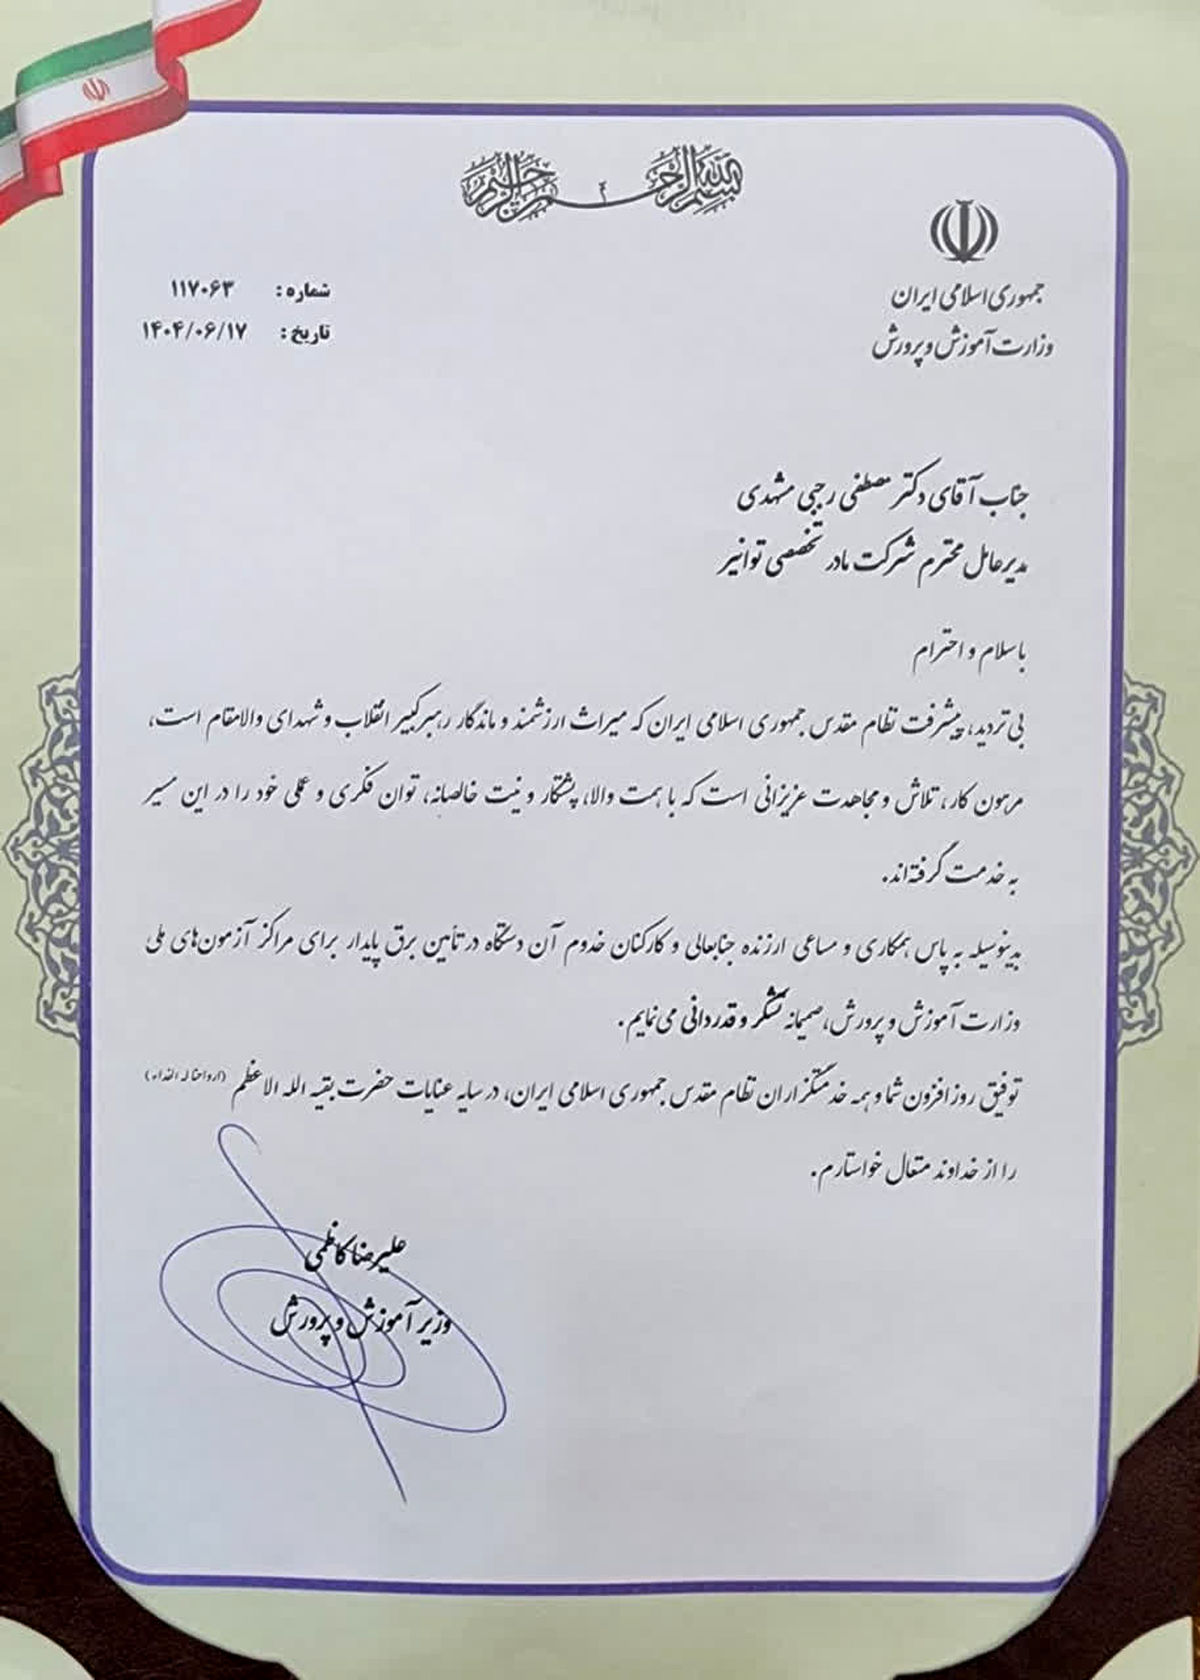 بسم الله الرحمن الرحیم
جمهوری اسلامی ایران
وزارت آموزش و پرورش
شماره: ۱۱۷۰۶۳
تاریخ: ۱۴۰۴/۰۶/۱۷
جناب آقای دکتر مصطفی رجبی مشهدی
مدیرعامل محترم شرکت مادر تخصصی توانیر
با سلام و احترام
بی تردید، پیشرفت نظام مقدس جمهوری اسلامی ایران که میراث ارزشمند و ماندگار رهبر کبیر انقلاب و شهدای والامقام است،
مرهون کار، تلاش و مجاهدت عزیزانی است که با همت والا، پشتکار و نیت خالصانه، توان فکری و عملی خود را در این مسیر
به خدمت گرفته‌اند.
بدینوسیله به پاس همکاری و مساعی ارزنده جنابعالی و کارکنان خدوم آن دستگاه در تأمین برق پایدار برای مراکز آزمون‌های ملی
وزارت آموزش و پرورش، صمیمانه تشکر و قدردانی می‌نمایم.
توفیق روز افزون شما و همه خدمتگزاران نظام مقدس جمهوری اسلامی ایران، در سایه عنایات حضرت بقیه الله الاعظم (ارواحنا له الفداء)
را از خداوند متعال خواستارم.
علیرضا کاظمی
وزیر آموزش و پرورش